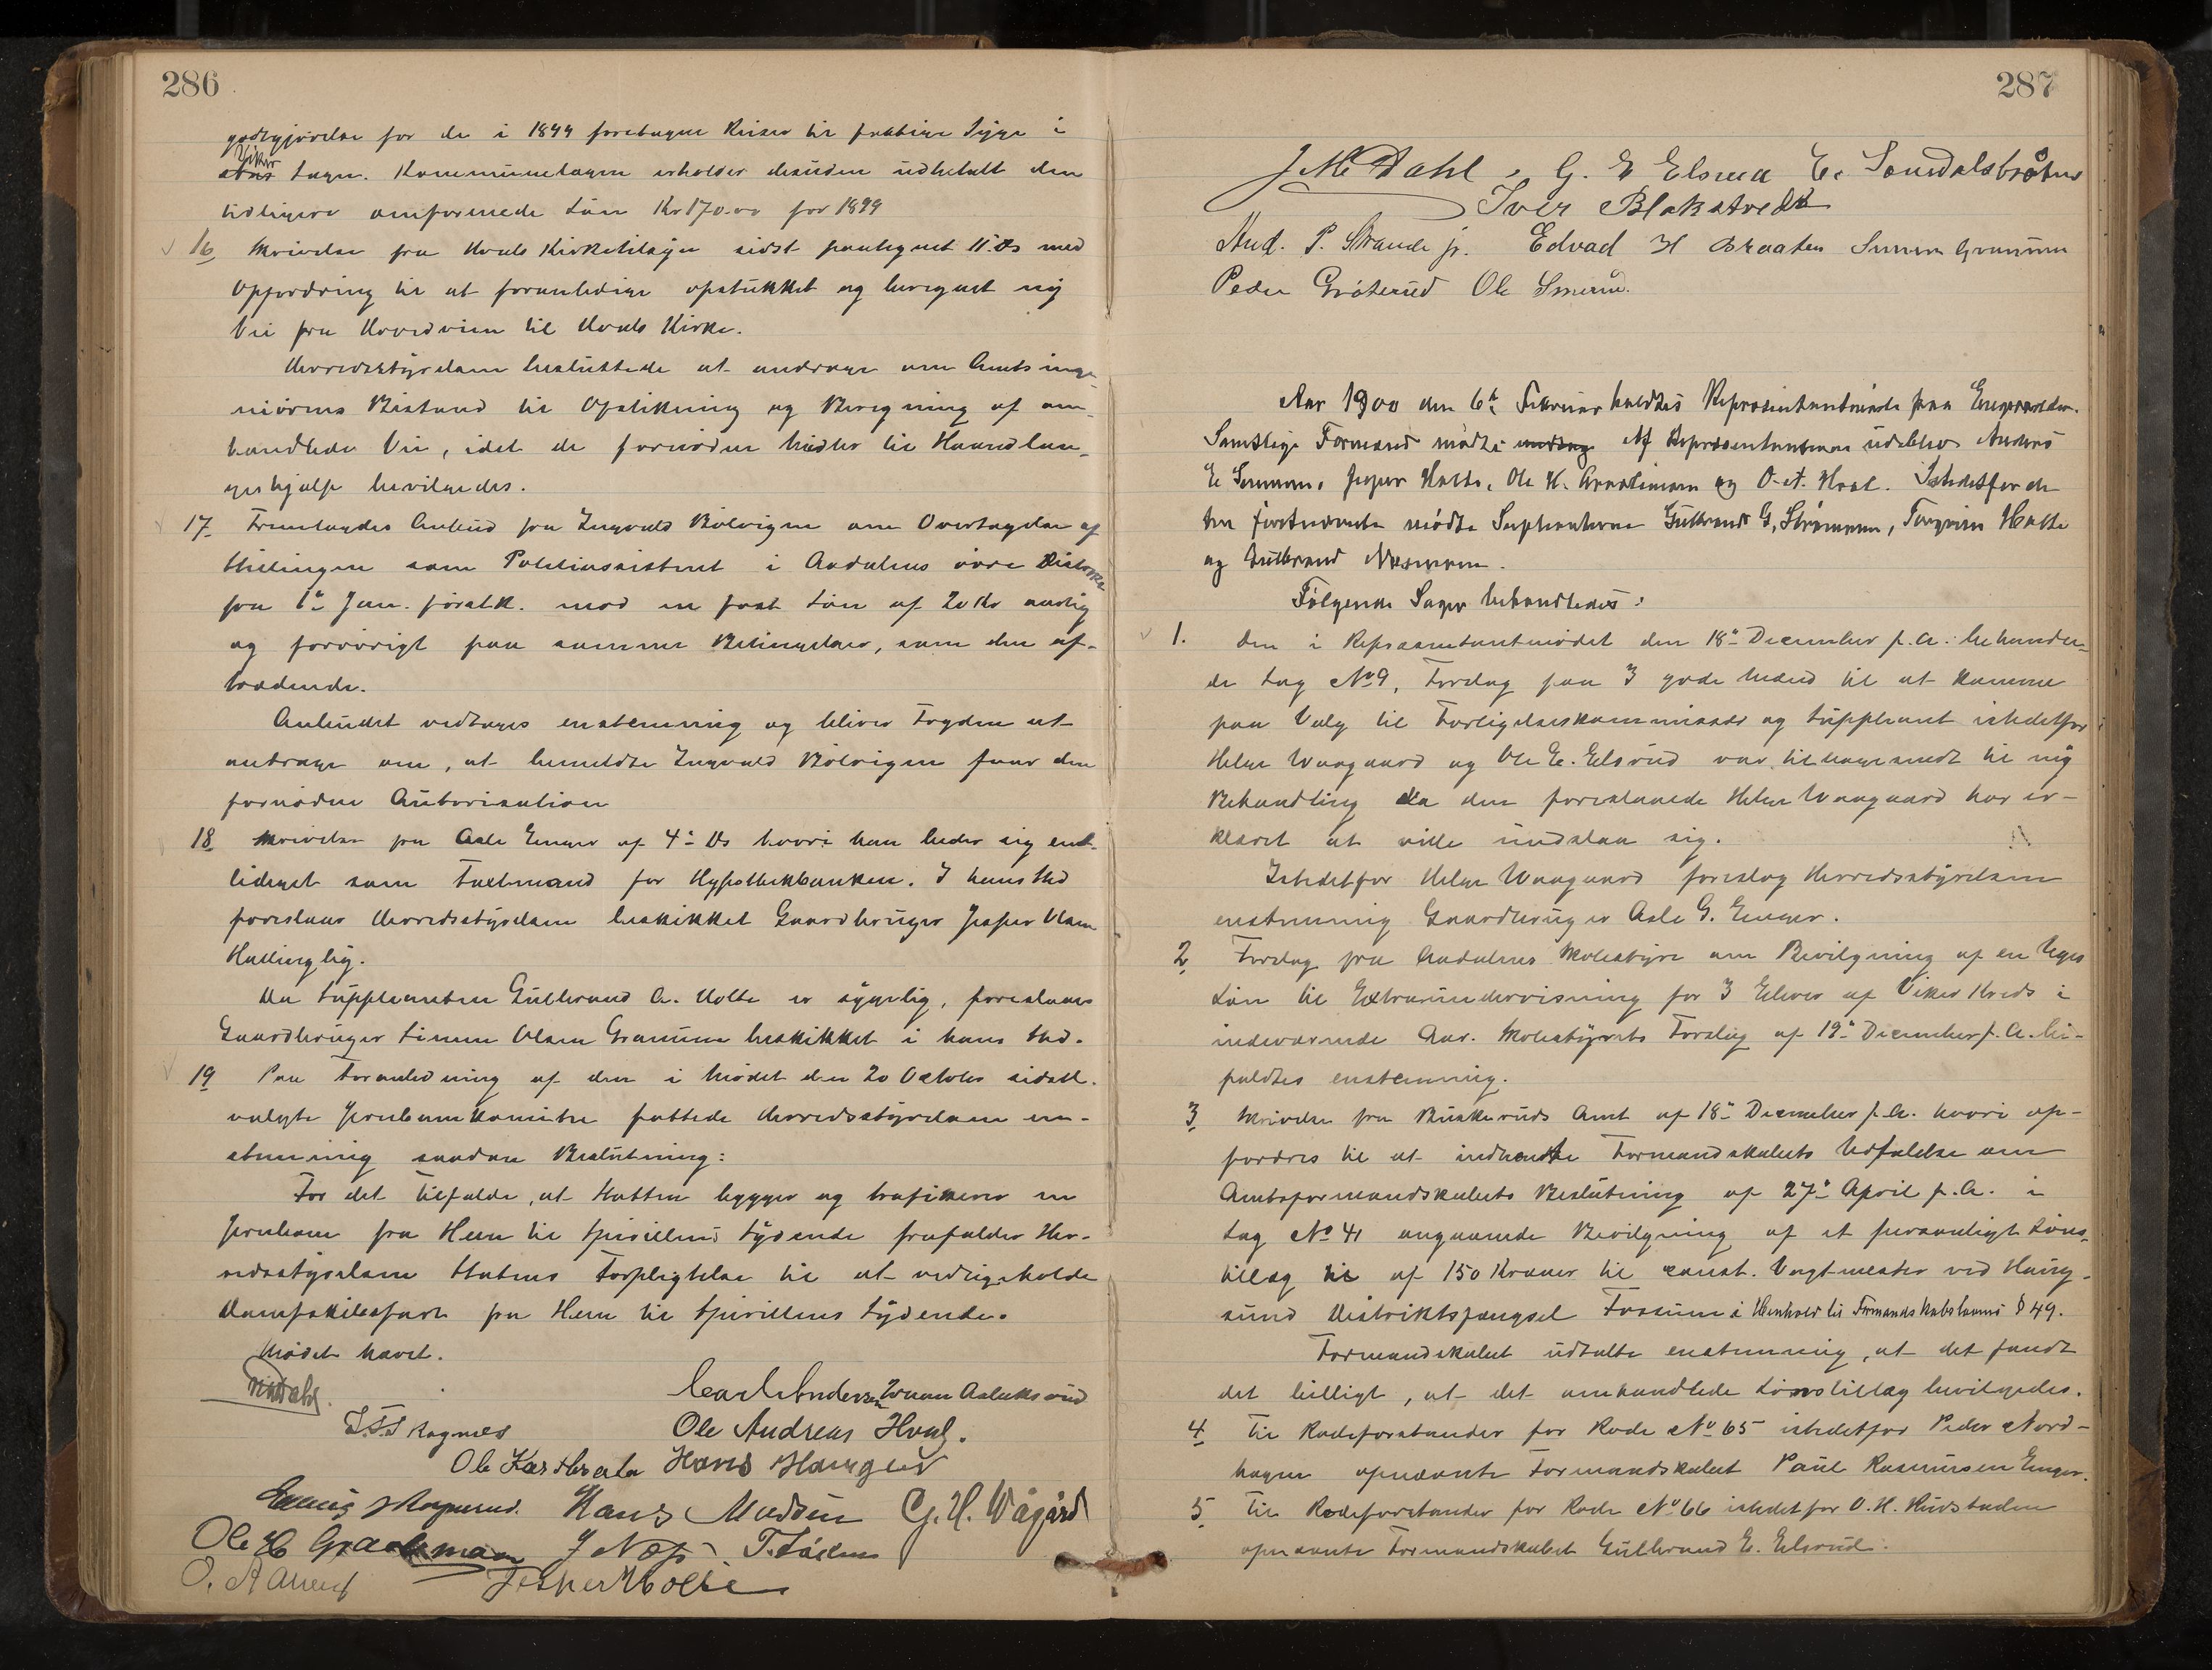 286
godtgjörelse for de i 1899 foretagne Reiser til fattige Syge i
Viker
Sogn. Kommunelægen erholder desuden udbetalt den
tidligere omforenede Løn Kr 170.00 for 1899
16 Skrivelse fra Hvals Kirketilsyn sidst paategnet 11. Ds med
Opfordring til at foranledige opstukket og beregnet ny
Vei fra Hovedveien til Hvals Kirke.
Herredsstyrelsen besluttede at andrage om Amtsinge-
niörens Bistand til Opstikning og Beregning af om-
handlede Vei, idet de fornödne Midler til Haandlan-
gerhjælp bevilgedes.
17 Fremlagdes Anbud fra Ingvald Bölvigen om Overtagelse af
Stillingen som Politiassistent i Aadalens övre Distrikt
fra 1ste Jan. förstk. mod en fast Løn af 20 Kr aarlig
og forövrigt paa samme Betingelser, som den af-
trædende.
Anbudet vedtages enstemmig og bliver Fogden at
andrage om, at bemeldte Ingvald Bölvigen faar den
fornödne Autorisation
18 Skrivelse fra Asle Enger af 4de Ds hvori han beder sig ent-
lediget som Taxtmand for Hypothekbanken. I hans Sted
foreslaar Herredsstyrelsen beskikket Gaardbruger Jesper Olsen
Hallinglig.
Da Suppleanten Gulbrand A. Holte er sygelig, foreslaaes
Gaardbruger Simen Olsen Granum beskikket i hans Sted.
19 Paa Foranledning af den i Mödet den 20 Octobr sidstl.
valgte Jernbanekomite fattede Herredsstyrelsen en-
stemmig saadan Beslutning:
For det Tilfælde, at Staten bygger og trafikerer en
Jernbane fra Heen til Spirillens Sydende frafalder Her-
redsstyrelsen Statens Forpligtelse til at vedligeholde
Dampskibsfart fra Heen til Spirillens Sydende.
Mödet hævet.
Carl Andersen Johan Aslaksrud
T.T. Skagnæs Ole Andreas Hval.
Ole Hans Haugerud
Hans Madsen G. H. Vågård
Ole H Graatsman J Næss
Jesper Holte
287
J M Dahl. G. E Elsrud E. Somdalsbråten
Iver Blakstvedt
And. P. Strande jr. Edvad H Braaten Simen Granum
Peder Gröterud Ole Smerud.
Aar 1900 den 6te Februar holdtes Repræsentantmöde paa Engerodden.
Samtlige Formænd mödte Af Repræsentanterne udeblev Anders
E Semmen, Jesper Holte, Ole H. Graatsmoen og O. A. Hval. Istedetfor de
tre förstnævnte mödte Suppleanterne Gulbrand G. Strömmen, Torgrim Holte
og Gulbrand Næsmoen.
Fölgende Sager behandledes:
1. Den i Repræsentantmödet den 18de December f. A. behandle-
de Sag No 9, Forslag paa 3 gode Mænd til at komme
paa Valg til Forligelseskommissær og Suppleant istedetfor
Helge Waagaard og Ole E. Elsrud var tilbagesendt til ny
Behandling da den foreslaaede Helge Waagaard har er-
klæret at ville undslaa sig.
Istedetfor Helge Waagaard foreslog Herredsstyrelsen
enstemmig Gaardbruger Asle G. Enger.
2 Forslag fra Aadalens Skolestyre om Bevilgning af en Uges
Løn til Extraundervisning for 3 Elever af Viker Kreds i
indeværende Aar. Skolestyrets Forslag af 19de December f. A. bi-
faldtes enstemmig.
3 Skrivelse fra Buskeruds Amt af 18de December f. A. hvori op-
fordres til at indhente Formandskabets Udtalelse om
Amtsformandskabets Beslutning af 27de April f. A. i
Sag No 41 angaaende Bevilgning af et personligt Löns-
tillæg til af 150 Kroner til const. Vagtmester ved Haug-
sund Distriktsfængsel Fossum i Henhold til Formandskabslovens § 49.
Formandskabet udtalte enstemmig, at det fandt
det billigt, at det omhandlede Lönstillæg bevilgedes.
4 Til Rodeforstander for Rode No 65 istedetfor Peder Nord-
hagen opnævnte Formandskabet Paul Rasmusen Enger.
5 Til Rodeforstander for Rode No 66 istedetfor O. H. Hudstaden
opnævnte Formandskabet Gulbrand E. Elsrud.